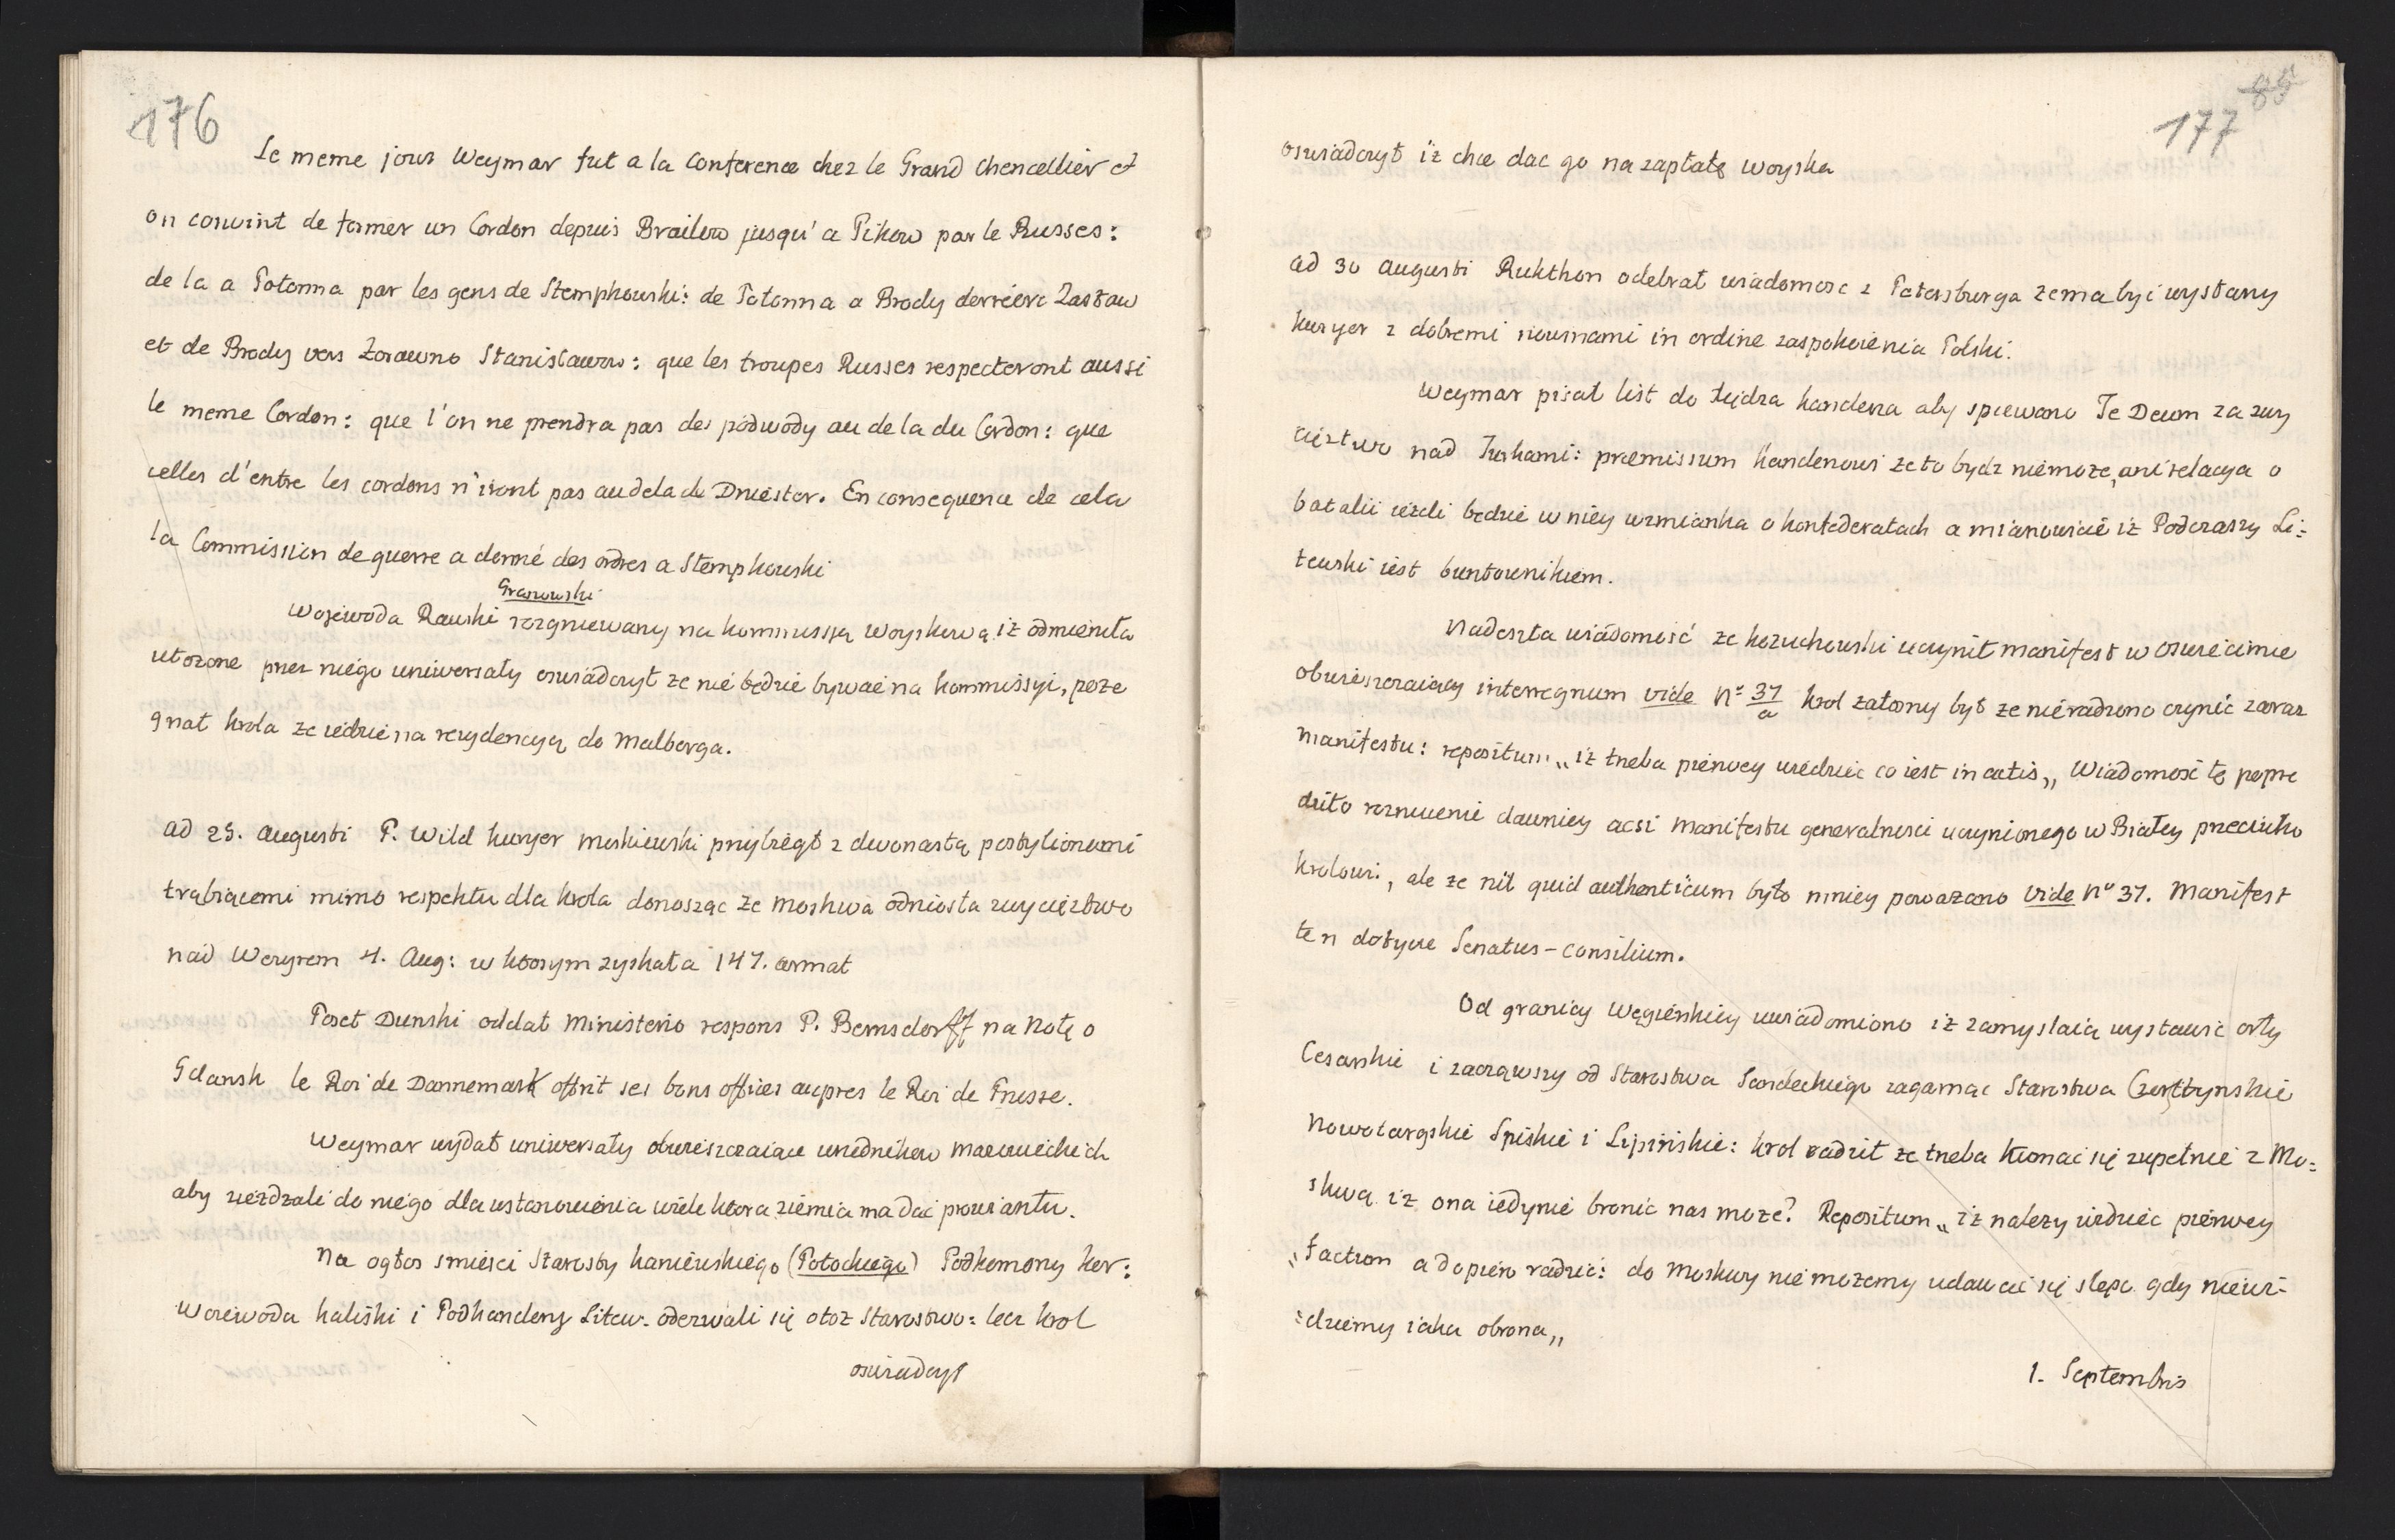 176
Le meme jour Weymar fut a la Conference chez le Grand Chencellier et
on convint de former un Cordon depuis Brailow jusqu'a Pikow par le Russes:
de la a Potonna par les gens de Stempkowski: de Potonna a Brody derriere Zasław
et de Brody vers Zorawno Stanisławow: que les troupes Russes respecteront aussi
le meme Cordon: que l'on ne prendra pas des podwody au de la du Cordon: que
celles d'entre les cordons n'iront pas audela du Dniester. En consequence de cela
la Commission de guerre a donné des ordres a Stempkowski
Granowski
Wojewoda Rawski rozgniewany na kommissyą Woyskową iż odmieniła
ułożone przez niego uniwersały oswiadczył ze nie będzie bywać na kommissyi, poże
gnał krola ze iedzie na rezydencyą do Malborga.
ad 25. Augusti P. Wild kuryer moskiewski przybiegł z dwonastą postylionami
trąbiącemi mimo respektu dla krola donosząc że Moskwa odniosła zwycięztwo
nad Wezyrem 4. Aug: w ktorym zyskała 147. armat
Poseł Dunski oddał Ministerio respons P. Bernsdorff na Notę o
Gdansk le Roi de Dannemark offrit ses bons offices aupres le Roi de Prusse.
Weymar wydał uniwersały obwieszczaiące urzednikow mazowieckich
aby ziezdzali do niego dla ustanowienia wiele ktora ziemia ma dać prowiantu.
Na ogłos smierci Starosty kaniewskiego (Potockiego) Podkomorzy kor:
Woiewoda kaliski i Podkanclerz Litew. oderwali się otoż Starostwo: lecz krol
oswiadczył
85
177
oswiadczył iż chce dac go na zapłatę woyska
ad 30 Augusti Rukthon odebrał wiadomosc z Petersburga że ma byc wysłany
kuryer z dobremi nowinami in ordine zaspokoienia Polski.
Weymar pisał list do Xiędza kanclerza aby spiewano Te Deum za zwy
cięztwo nad Turkami: præmissum kanclerzowi że to bydz niemoze, ani relacya o
batalii ieżeli będzie w niey wzmianka o konfederatach a mianowicie iż Podczaszy Li:
tewski iest buntownikiem.
Nadeszła wiadomość że kozuchowski uczynił manifest w Oswiecimie
obwieszczaiący interregnum vide N° 37/a krol załosny był ze nieradzono czynić zaraz
manifestu: repositum „iż trzeba pierwey wiedziec co iest in actis„ Wiadomosć tę poprze
dziło roznieenie dawniey acsi manifestu generalnosci uczynionego w Białey przeciwko
krolowi, ale że nil quid authenticum było mniey poważano vide N° 37. Manifest
ten dotycze Senatus-consilium.
Od granicy Węgierskiey uwiadomiono iż zamyslaią wystawic orły
Cesarskie i zacząwszy od Starostwa Sandeckiego zagarnąc Starostwa Czorsztynskie
Nowotargskie Spiskie i Lipinskie: krol radził że trzeba łłomać się zupełnie z Mo:
skwą iż ona iedynie bronic nas moze? Repositum „iż nalezy widziec pierwey
„factum a dopiero radzic: do Moskwy nie mozemy udawac się slepo gdy niewi-
:dziemy iaka obrona„
1. Septembris